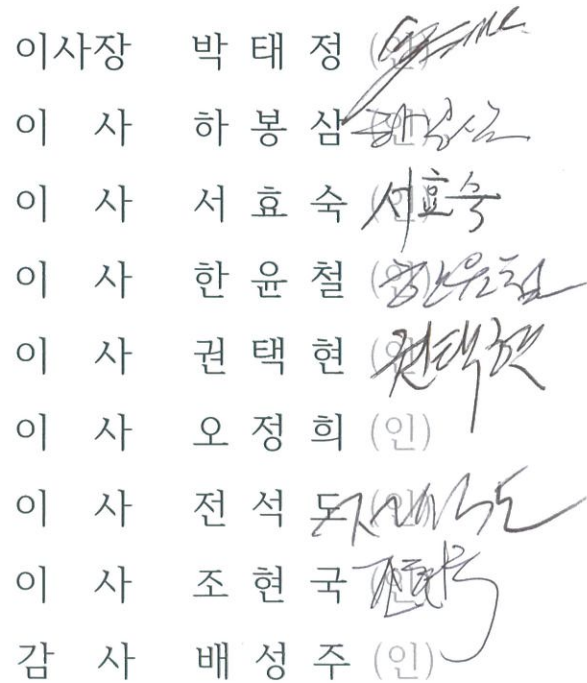 이사장 박태정 (인)
이 사 하봉삼 (인)
이 사 서효숙 (인) 서효숙
이 사 한윤철 (인) 한윤철
이 사 권택현 (인) 권택현
이 사 오정희 (인)
이 사 전석도 (인)
이 사 조현국 (인)
감 사 배성주 (인)